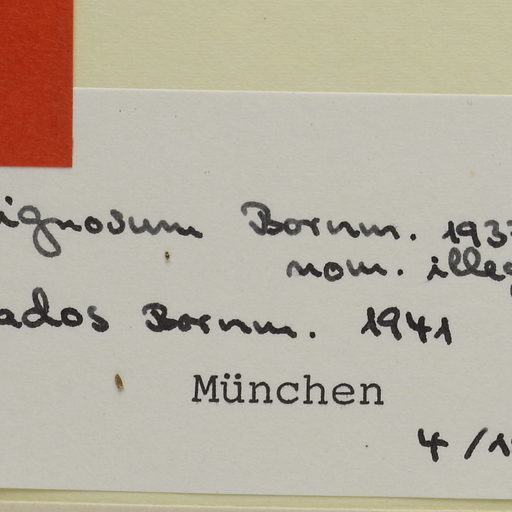 ignosum Bornm. 193
nom. illeg
ados Bornm. 1941
München
4/1